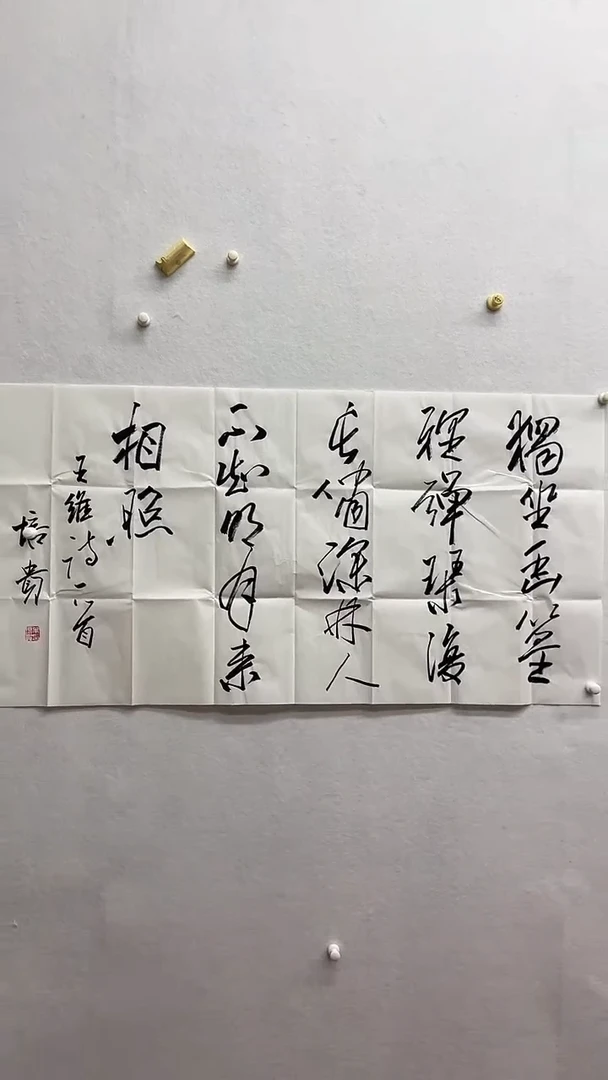 獨坐幽篁
裡彈琴復
长嘯深林人
不知明月来
相照
王維詩一首
培貴